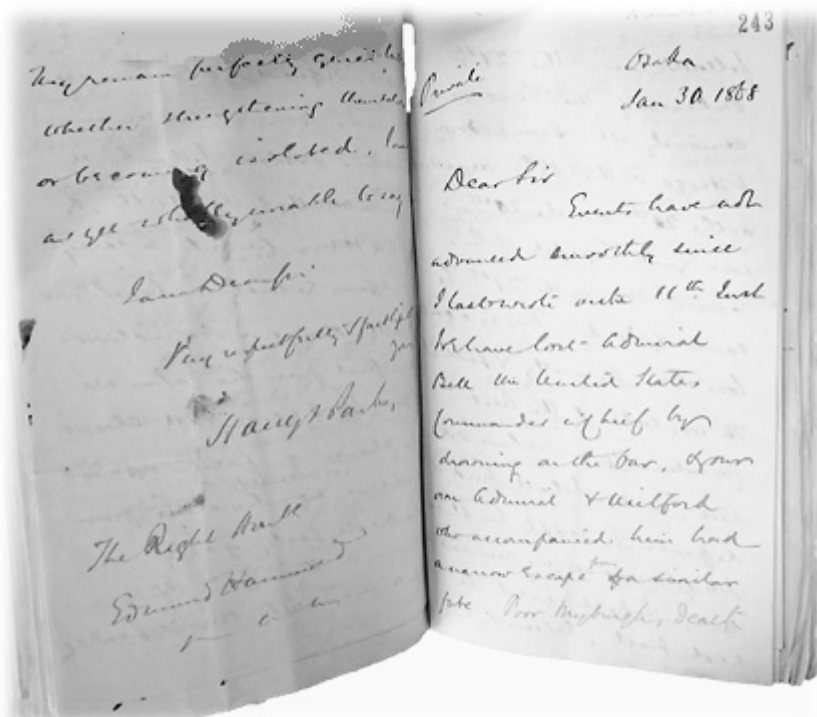 They remain perfectly
whether strengthening
or becoming isolated. I am
as yet wholly unable to say
I am Dear Sir
Very respectfully & faithfully
Harry S Parkes
The Right Honble
Edmund Hammond
243
Private
Osaka
Jan 30. 1868
Dear Sir
Events have not
advanced smoothly since
I last wrote on the 11th Inst
We have lost Admiral
Bell the United States
Commander in Chief by
drowning on the bar, & our
own Admiral & Mitford
who accompanied him had
a narrow escape from a similar
fate. Poor Death